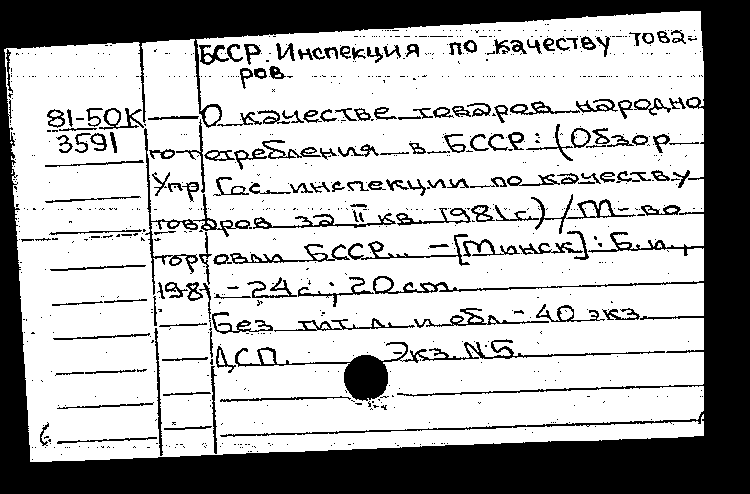 БССР. Инспекция по качеству това-
ров.
81-50К
3591
— О качестве товаров народно
го потребления в БССР: (Обзор
Упр. Гос. инспекции по качеству
товаров за II кв. 1981 г.) / М-во
торговли БССР... - [Минск]: Б.и.,
1981. - 24 с.; 20 см.
Без тит. л. и обл. - 40 экз.
ДСП. Экз. N5.
6